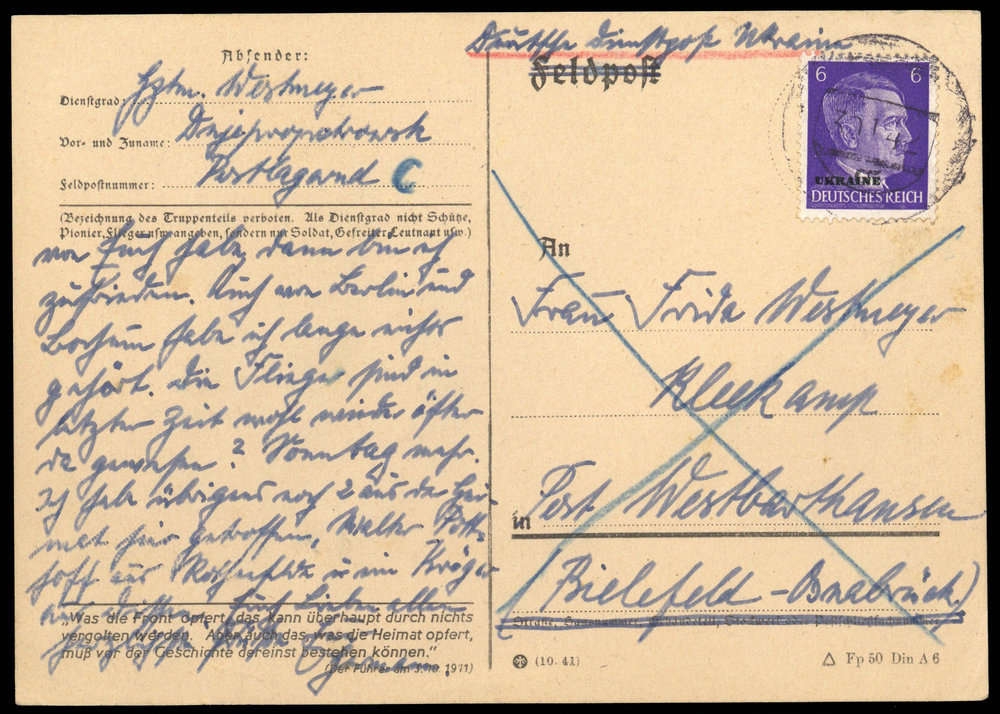 Deutsche Dienstpost Ukraine
Feldpost
Absender:
Dienstgrad: Hptm. Westmeyer
Vor- und Zuname: Dnjepropetrowsk
Feldpostnummer: Postlagernd C
(Bezeichnung des Truppenteils verboten. Als Dienstgrad nicht Schütze,
Pionier, Flieger usw. angeben, sondern nur Soldat, Gefreiter, Leutnant usw.)
von Euch habe, dann bin ich
zufrieden. Auch von Berlin und
Bochum habe ich lange nichts
gehört. Die Flieger sind in
letzter Zeit wohl wieder öfter
da gewesen? Sonntag mehr.
Ich habe übrigens noch 2 aus der Hei-
mat hier getroffen, Walter Pott-
hoff aus Rothenfelde u. ein Kröger
aus Dissen. Euch Lieben allen
„Was die Front opfert, das kann überhaupt durch nichts
vergolten werden. Aber auch das, was die Heimat opfert,
muß vor der Geschichte dereinst bestehen können."
(Der Führer am 3. 10. 1941)
6 6
UKRAINE
DEUTSCHES REICH
An
Frau Frida Westmeyer
Kleekamp
in Post Westbarthausen
(Bielefeld-Osnabrück)
(10. 41)
Fp 50 Din A 6